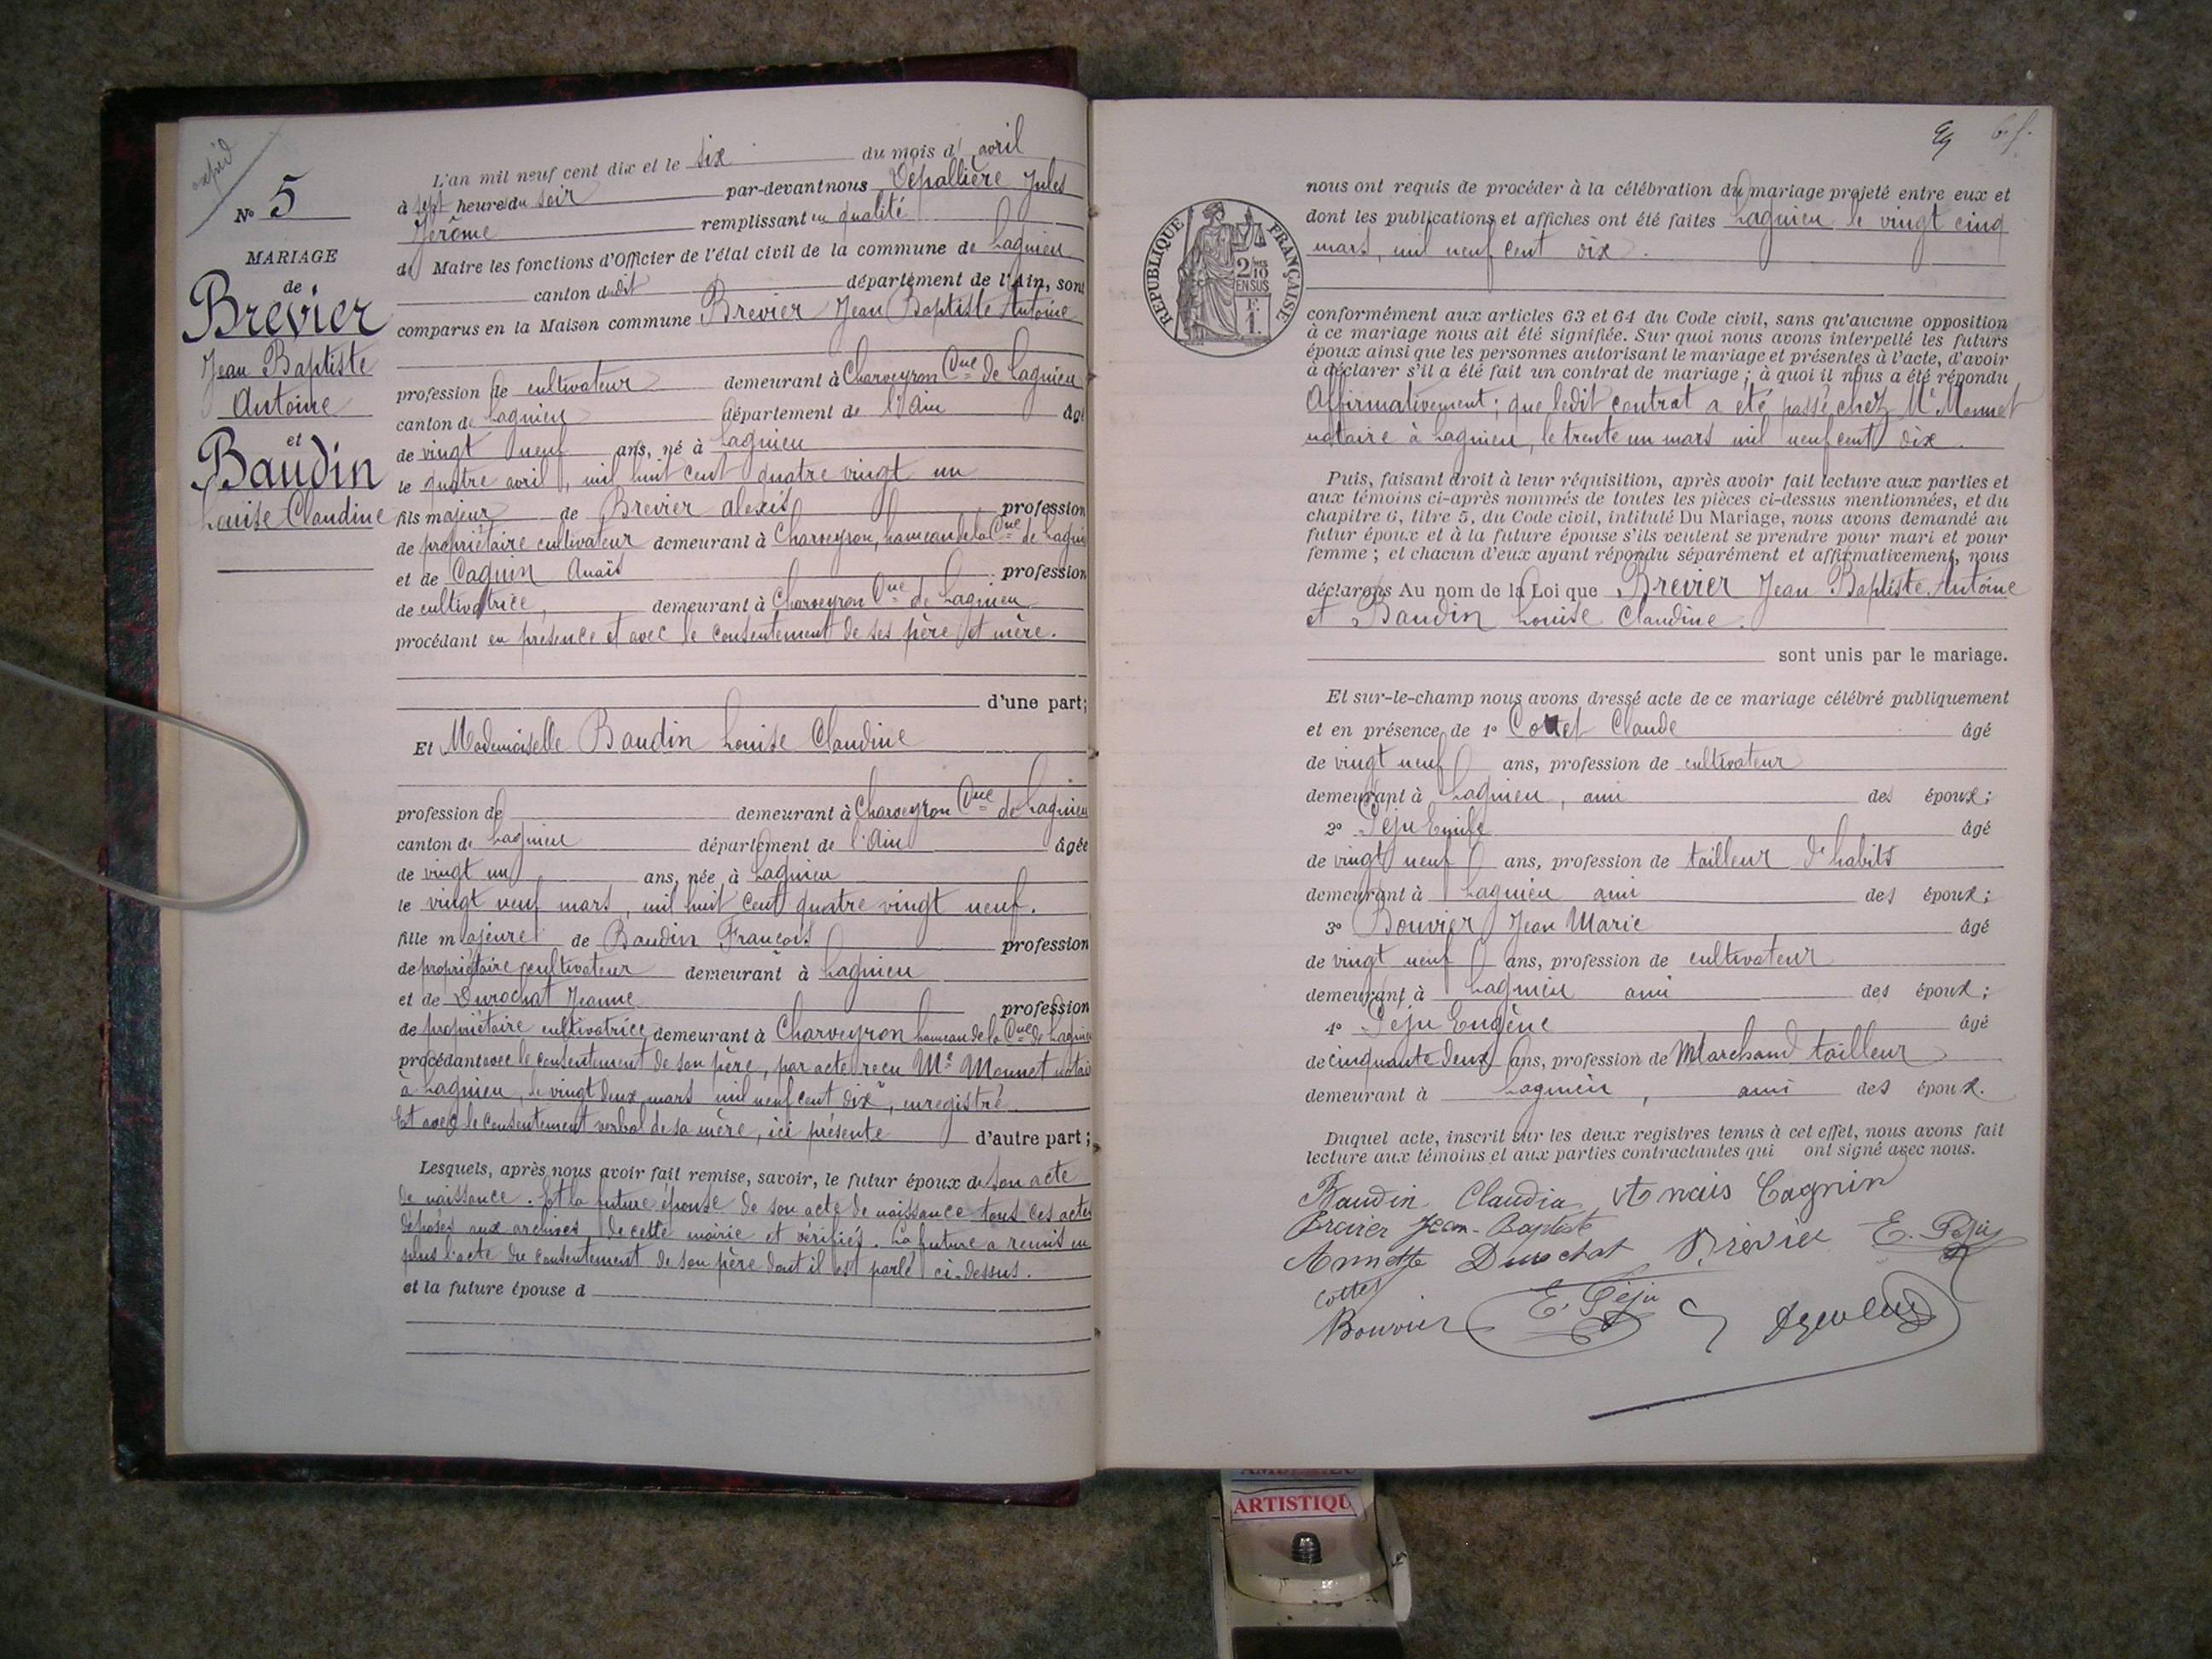 expéd
N° 5
MARIAGE
de
Brevier
Jean Baptiste
Antoine
et
Baudin
Louise Claudine
L'an mil neuf cent dix et le six du mois d' avril
à sept heure du soir par-devant nous Dépallière Jules
Jérôme remplissant en qualité
de Maire les fonctions d'Officier de l'état civil de la commune de Lagnieu
canton dudit département de l'Ain, sont
comparus en la Maison commune Brevier Jean Baptiste Antoine
profession de cultivateur demeurant à Charveyron Cne de Lagnieu
canton de Lagnieu département de l'Ain âgé
de vingt neuf ans, né à Lagnieu
le quatre avril, mil huit cent quatre vingt un
fils majeur de Brevier alexis profession
de propriétaire cultivateur demeurant à Charveyron, hameau de la Cne de Lagnieu
et de Cagnin Anaïs profession
de cultivatrice, demeurant à Charveyron Cne de Lagnieu
procédant en présence et avec le consentement de ses père et mère.
d'une part;
Et Mademoiselle Baudin Louise Claudine
profession de demeurant à Charveyron Cne de Lagnieu
canton de Lagnieu département de l'Ain âgée
de vingt un ans, née à Lagnieu
le vingt neuf mars, mil huit cent quatre vingt neuf.
fille majeure de Baudin François profession
de propriétaire cultivateur demeurant à Lagnieu
et de Durochat Jeanne profession
de propriétaire cultivatrice demeurant à Charveyron hameau de la Cne de Lagnieu
procédant avec le consentement de son père, par acte recu Me Monnet notaire
a Lagnieu, le vingt deux mars mil neuf cent dix, enregistré
Et avec le consentement verbal de sa mère, ici présente d'autre part;
Lesquels, après nous avoir fait remise, savoir, le futur époux de son acte
de naissance. Et la future épouse de son acte de naissance tous ces actes
déposés aux archives de cette mairie et vérifiés. La future a remis en
plus l'acte du consentement de son père dont il est parlé ci-dessus.
et la future épouse d
RÉPUBLIQUE FRANÇAISE
2/10
EN SUS
F.
1.
nous ont requis de procéder à la célébration du mariage projeté entre eux et
dont les publications et affiches ont été faites Lagnieu le vingt cinq
mars, mil neuf cent dix.
conformément aux articles 63 et 64 du Code civil, sans qu'aucune opposition
à ce mariage nous ait été signifiée. Sur quoi nous avons interpellé les futurs
époux ainsi que les personnes autorisant le mariage et présentes à l'acte, d'avoir
à déclarer s'il a été fait un contrat de mariage; à quoi il nous a été répondu
Affirmativement; que ledit contrat a été passé chez Me Monnet
notaire à Lagnieu, le trente un mars mil neuf cent dix.
Puis, faisant droit à leur réquisition, après avoir fait lecture aux parties et
aux témoins ci-après nommés de toutes les pièces ci-dessus mentionnées, et du
chapitre 6, titre 5, du Code civil, intitulé Du Mariage, nous avons demandé au
futur époux et à la future épouse s'ils veulent se prendre pour mari et pour
femme; et chacun d'eux ayant répondu séparément et affirmativement, nous
déclarons Au nom de la Loi que Brevier Jean Baptiste Antoine
et Baudin Louise Claudine.
sont unis par le mariage.
Et sur-le-champ nous avons dressé acte de ce mariage célébré publiquement
et en présence de 1° Cottet Claude âgé
de vingt neuf ans, profession de cultivateur
demeurant à Lagnieu, ami des époux;
2° Péju Emile âgé
de vingt neuf ans, profession de tailleur d'habits
demeurant à Lagnieu ami des époux;
3° Bouvier Jean Marie âgé
de vingt neuf ans, profession de cultivateur
demeurant à Lagnieu ami des époux;
4° Péju Eugène âgé
de cinquante deux ans, profession de Marchand tailleur
demeurant à Lagnieu, ami des époux.
Duquel acte, inscrit sur les deux registres tenus à cet effet, nous avons fait
lecture aux témoins et aux parties contractantes qui ont signé avec nous.
Baudin Claudia Anais Cagnin
Brevier Jean-Baptiste
Annette Durochat Brévier E. Péju
Cottet
Bouvier E. Péju
ARTISTIQU